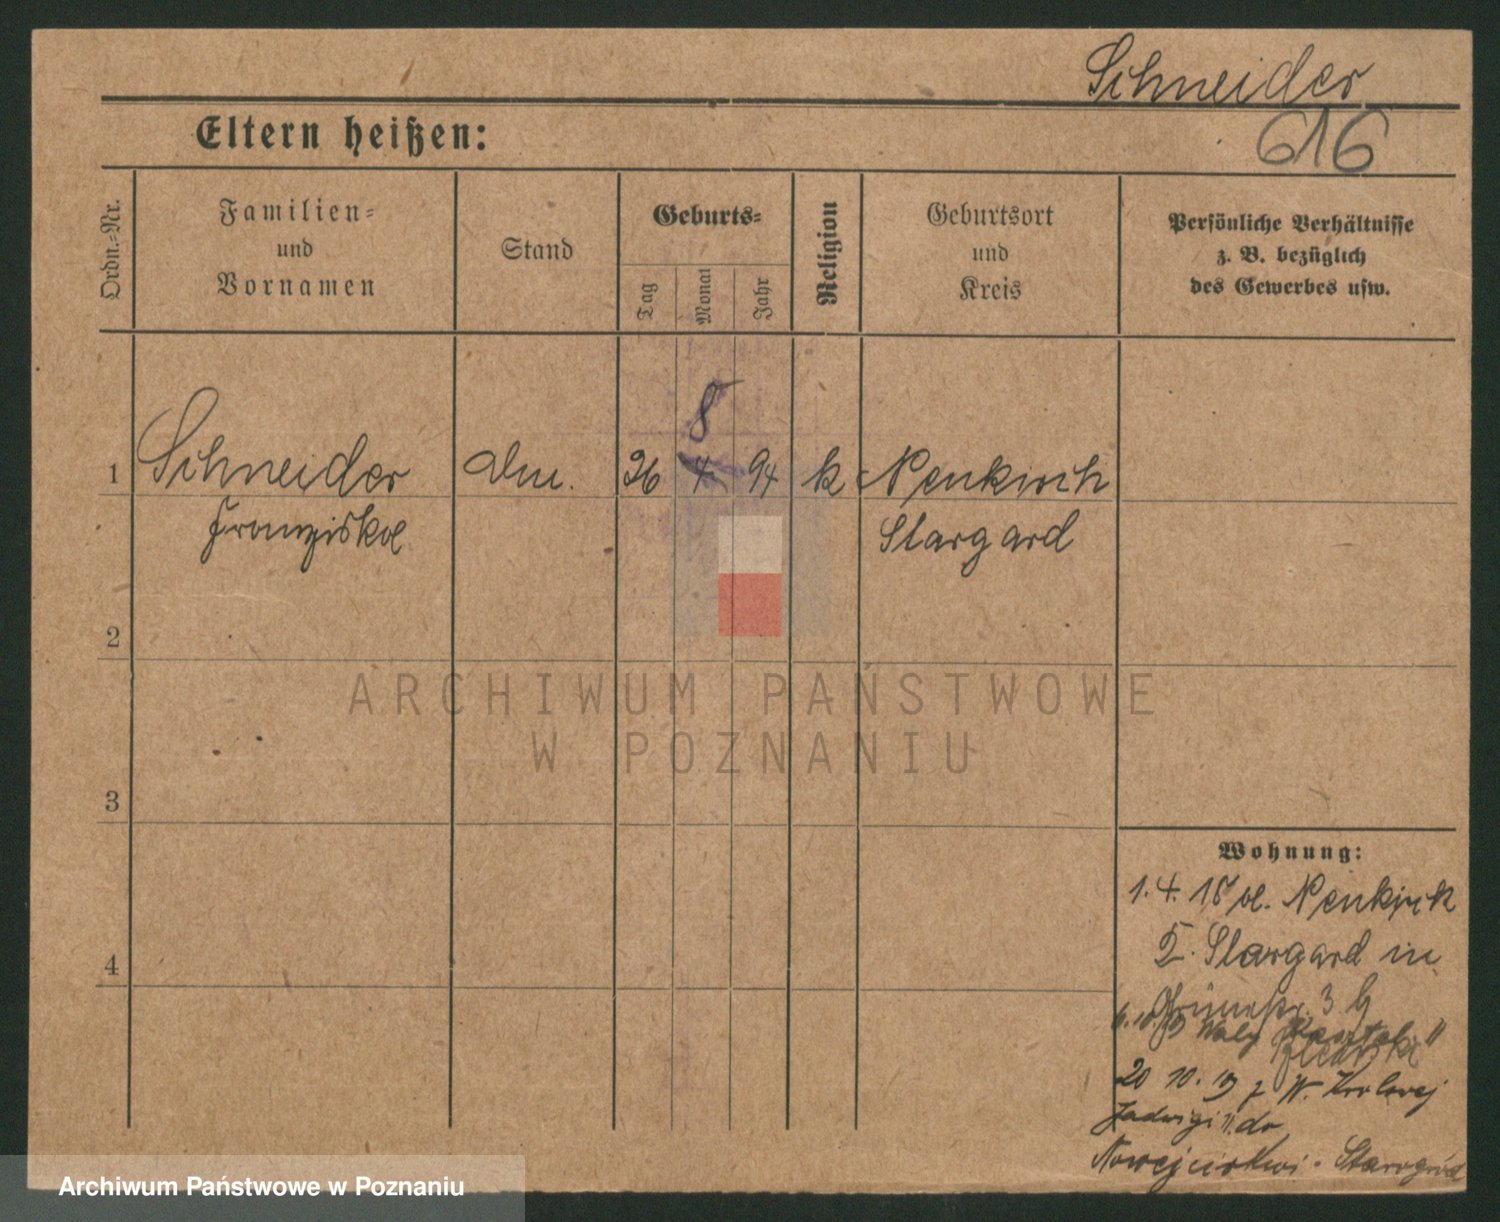 Schneider
616
Eltern heißen:
Ordn.-Nr.
Familien-
und
Vornamen
Stand
Geburts-
Tag
Monat
Jahr
Religion
Geburtsort
und
Kreis
Persönliche Verhältnisse
z. B. bezüglich
des Gewerbes usw.
8
1 Schneider 26 4 94 k Neukirch
Franziska Stargard
2
ARCHIWUM PAŃSTWOWE
W POZNANIU
3
4
Wohnung:
1. 4. 18 Neukirch
Stargard in
3
20 10. 19 z W. Krolowej
Jadwigi 11 do
Nowejcirkwi - Starogród
Archiwum Państwowe w Poznaniu